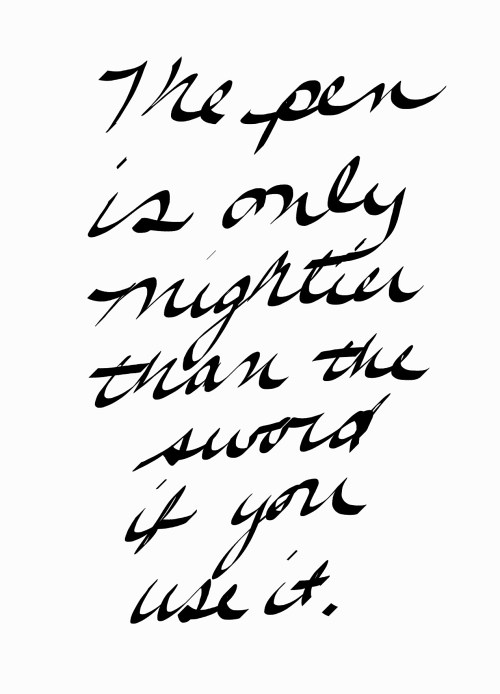 The pen
is only
mightier
than the
sword
if you
use it.